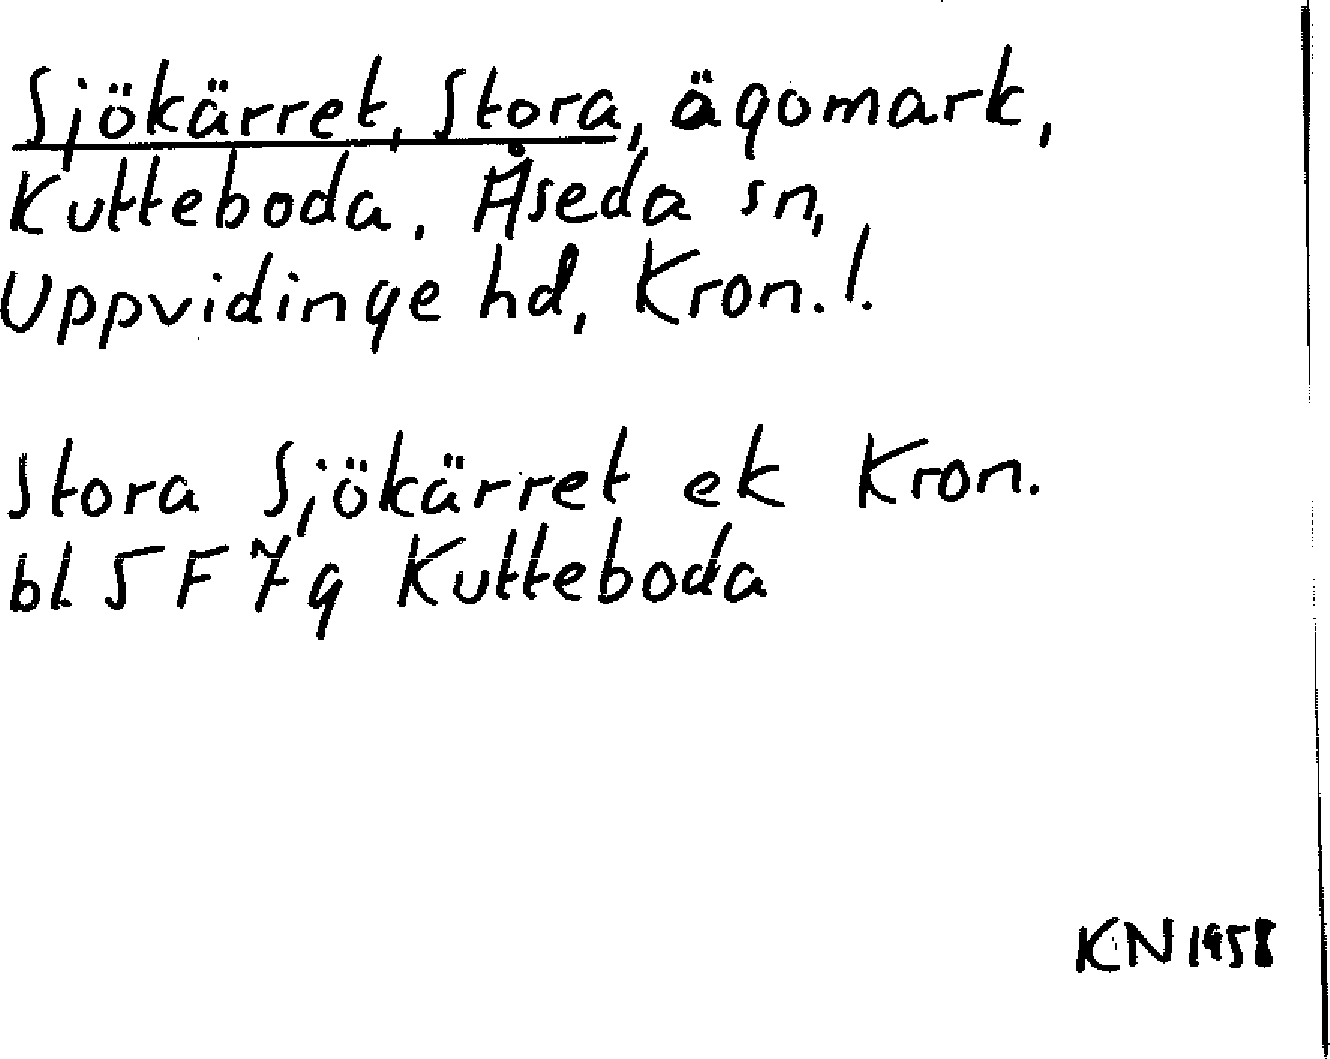 Sjökärret, Stora, ägomark,
Kutteboda. Åseda sn,
Uppvidinge hd, Kron. l.
Stora Sjökärret ek Kron.
bl. 5 F 7 g Kutteboda
KN 1958